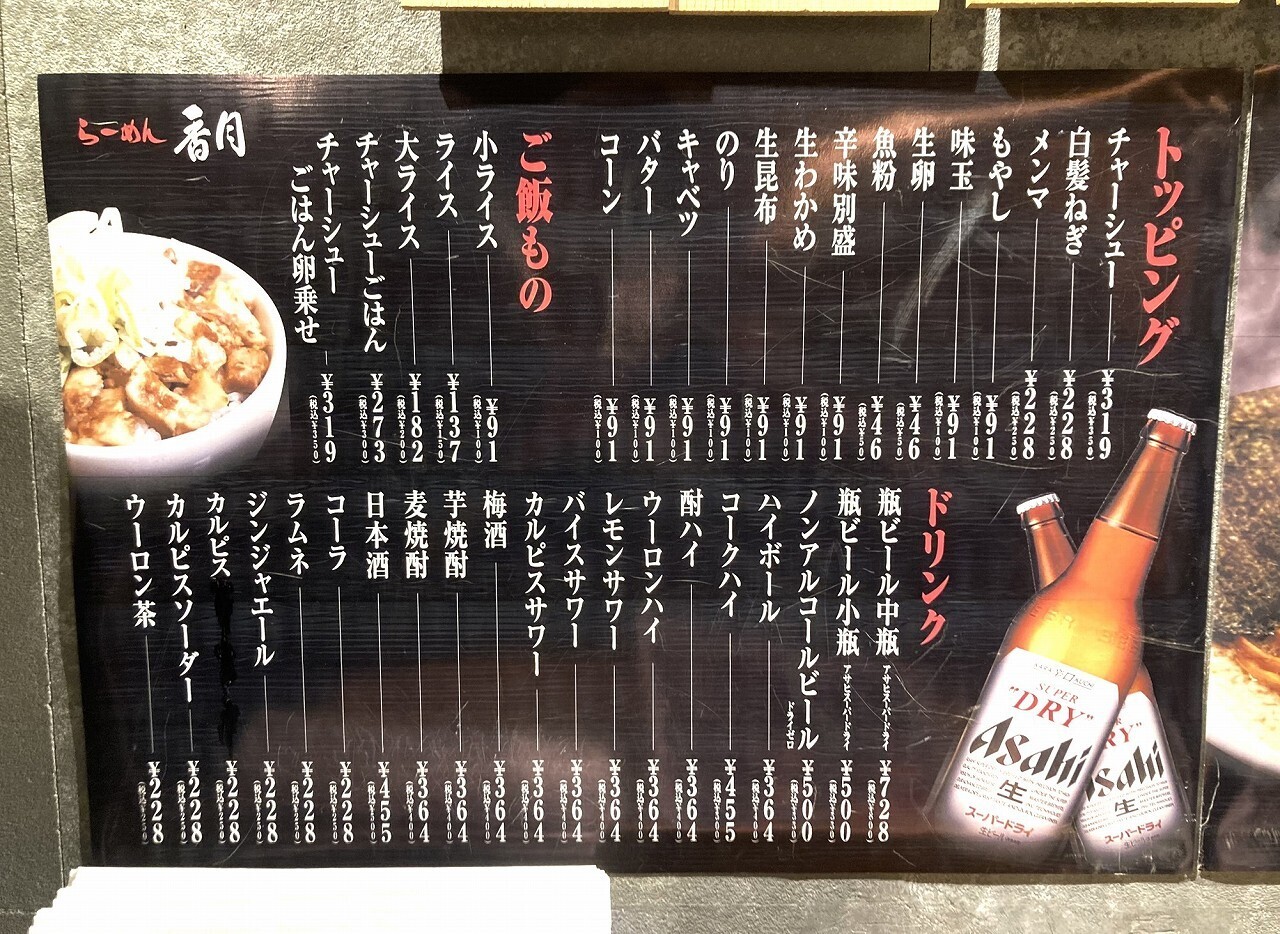 らーめん 香月
トッピング
チャーシュー ¥319 (税込¥350)
白髪ねぎ ¥228 (税込¥250)
メンマ ¥228 (税込¥250)
もやし ¥91 (税込¥100)
味玉 ¥91 (税込¥100)
生卵 ¥46 (税込¥50)
魚粉 ¥46 (税込¥50)
辛味別盛 ¥91 (税込¥100)
生わかめ ¥91 (税込¥100)
生昆布 ¥91 (税込¥100)
のり ¥91 (税込¥100)
キャベツ ¥91 (税込¥100)
バター ¥91 (税込¥100)
コーン ¥91 (税込¥100)
ご飯もの
小ライス ¥91 (税込¥100)
ライス ¥137 (税込¥150)
大ライス ¥182 (税込¥200)
チャーシューごはん ¥273 (税込¥300)
チャーシュー
ごはん卵乗せ ¥319 (税込¥350)
ドリンク
瓶ビール中瓶 アサヒスーパードライ ¥728 (税込¥800)
瓶ビール小瓶 アサヒスーパードライ ¥500 (税込¥550)
ノンアルコールビール ドライゼロ ¥500 (税込¥550)
ハイボール ¥364 (税込¥400)
コークハイ ¥455 (税込¥500)
酎ハイ ¥364 (税込¥400)
ウーロンハイ ¥364 (税込¥400)
レモンサワー ¥364 (税込¥400)
バイスサワー ¥364 (税込¥400)
カルピスサワー ¥364 (税込¥400)
梅酒 ¥364 (税込¥400)
芋焼酎 ¥364 (税込¥400)
麦焼酎 ¥364 (税込¥400)
日本酒 ¥455 (税込¥500)
コーラ ¥228 (税込¥250)
ラムネ ¥228 (税込¥250)
ジンジャエール ¥228 (税込¥250)
カルピス ¥228 (税込¥250)
カルピスソーダー ¥228 (税込¥250)
ウーロン茶 ¥228 (税込¥250)
SUPER
"DRY"
Asahi
生
スーパードライ
RY"
Asahi
生
スーパードライ